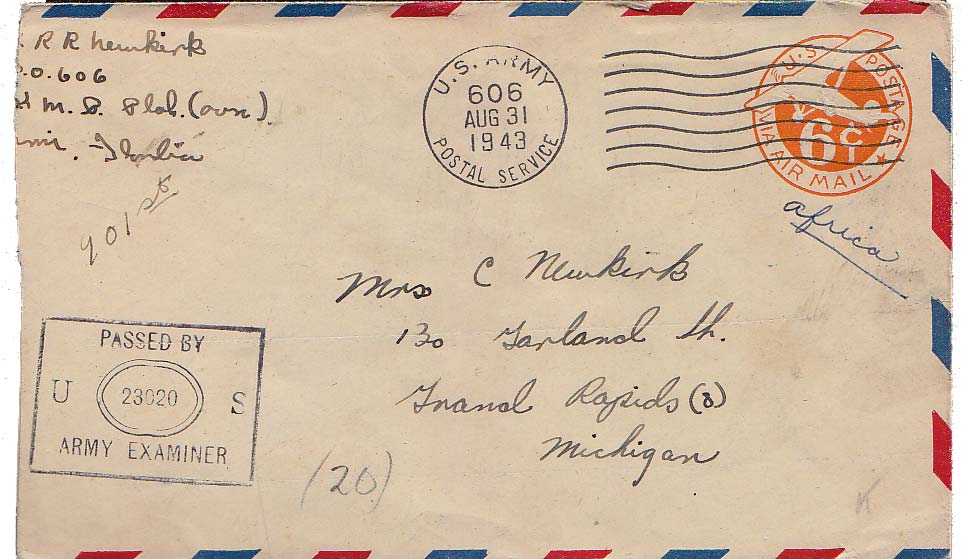 . R R Newkirk
.O. 606
M. S. (ovn).
Florida
901st
U.S. ARMY
606
AUG 31
1943
POSTAL SERVICE
U.S. POSTAGE
6 C
VIA AIR MAIL
Africa
Mrs C Newkirk
130 Garland St.
Grand Rapids (8)
Michigan
PASSED BY
U 23020 S
ARMY EXAMINER
(20)
K